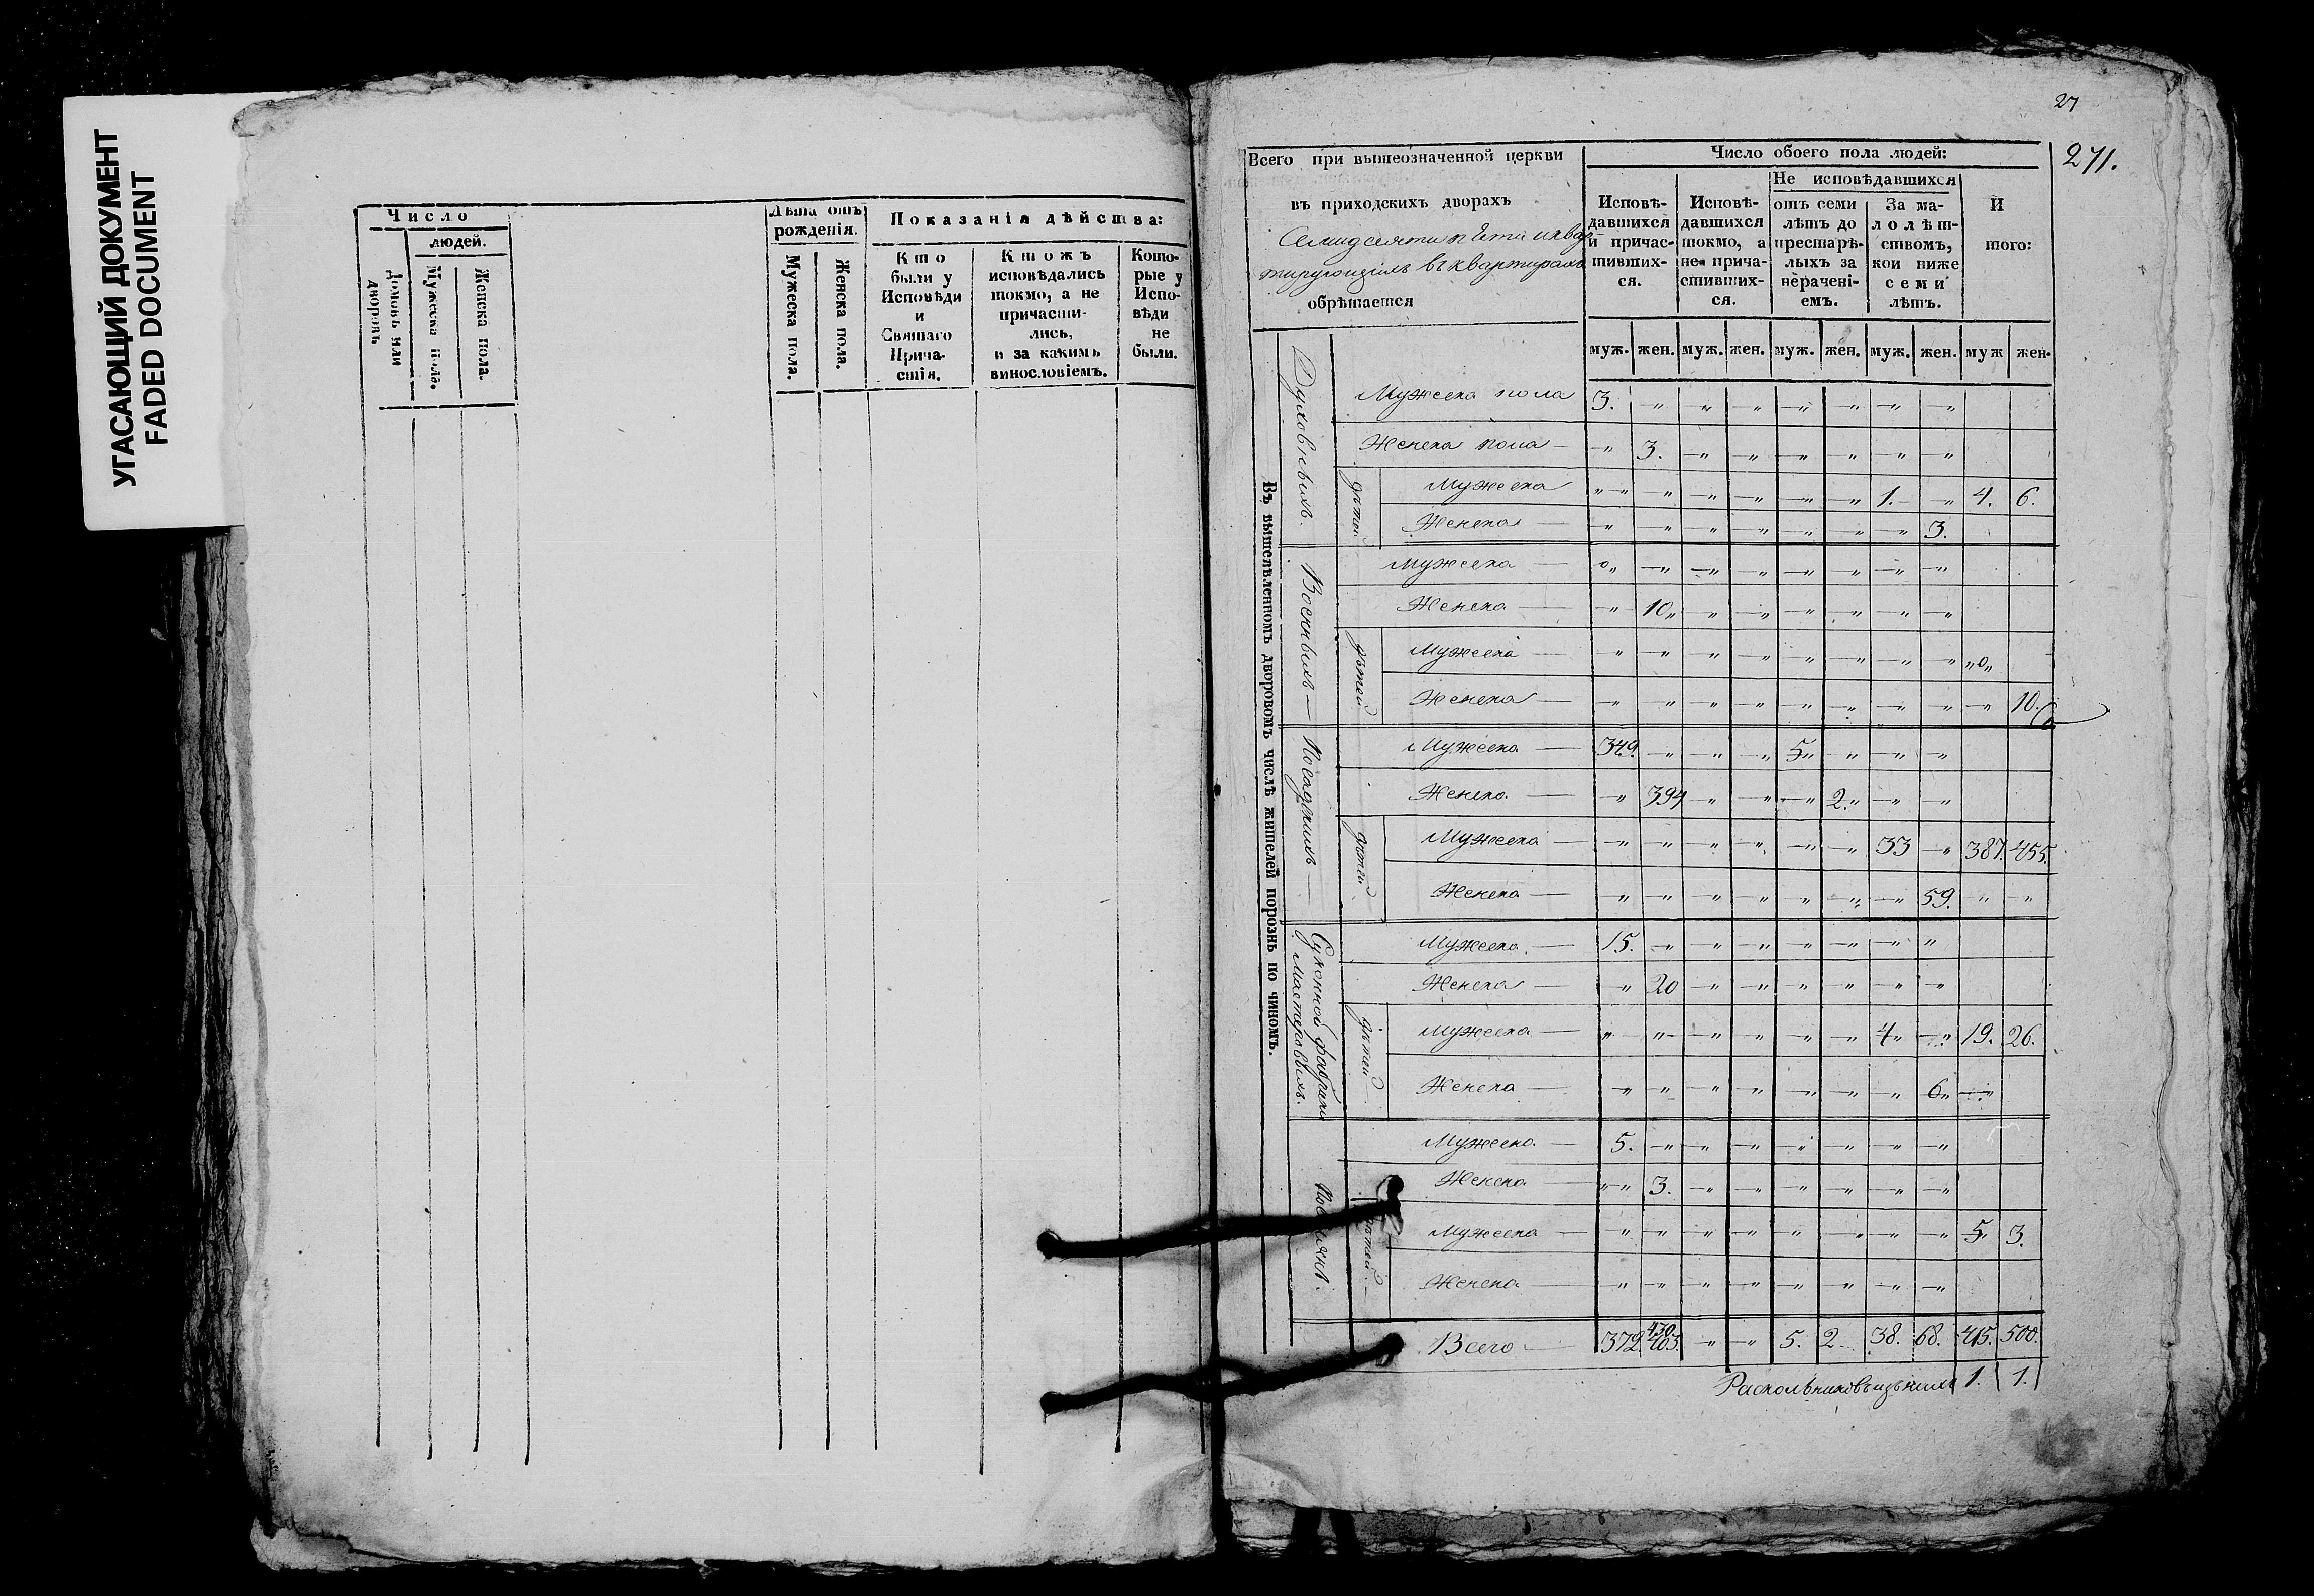 УГАСАЮЩИЙ ДОКУМЕНТ
FADED DOCUMENT
Число
людей.
Домовъ или дворовъ
Мужеска пола.
Женска пола.
Лѣта отъ рожденія.
Мужеска пола.
Женска пола.
Показанія дѣйства:
Кто
были у
Исповѣди
и
Святаго
Прича-
стія.
Ктожъ
исповѣдались
токмо, а не
причасти-
лись,
и за какимъ
винословіемъ.
Кото-
рые у
Испо-
вѣди
не
были.
27
271.
Всего при вышеозначенной церкви
въ приходскихъ дворахъ
Семидесяти пяти и квар-
тирующихъ въ квартирахъ
обрѣтается
Число обоего пола людей:
Исповѣ-
давшихся
и причас-
тивших-
ся.
Исповѣ-
давшихся
токмо, а
не прича-
стивших-
ся.
Не исповѣдавшихся
отъ семи
лѣтъ до
престарѣ-
лыхъ за
нерачені-
емъ.
За ма-
лолѣт-
ствомъ,
кои ниже
семи
лѣтъ.
И
того:
муж. жен. муж. жен. муж. жен. муж. жен. муж жен.
Въ вышеявленномъ дворовомъ числѣ жителей порознь по чиномъ.
Духовныхъ.
Мужеска пола 3. „ „ „ „ „ „ „
Женска пола „ 3. „ „ „ „ „ „
дѣтей
Мужеска „ „ „ „ „ „ 1. „ 4. 6.
Женска „ „ „ „ „ „ „ 3.
Военныхъ
Мужеска 0„ „ „ „ „ „ „ „
Женска „ 10„ „ „ „ „ „ „
дѣтей
Мужеска „ „ „ „ „ „ „ „ „0„
Женска „ „ „ „ „ „ „ „ „ 10.
Посадскихъ
Мужеска 349. „ „ „ 5„ „ „ „
Женска „ 394 „ „ „ 2.„ „ „
дѣтей
Мужеска „ „ „ „ „ „ 33 „ 387. 455.
Женска „ „ „ „ „ „ „ 59. „ „
Суконной фабрики мастеровыхъ.
Мужеска 15. „ „ „ „ „ „ „
Женска „ 20 „ „ „ „ „ „
дѣтей
Мужеска „ „ „ „ „ „ 4„ „ 19. 26.
Женска „ „ „ „ „ „ „ 6„ „
Мужеска 5. „ „ „ „ „ „ „
Женска „ 3. „ „ „ „ „ „
Мужеска „ „ „ „ „ „ „ „ 5„ 3.
Женска „ „ „ „ „ „ „ „
Всего 372 430 403. „ „ 5. 2 38. 68. 415. 500.
Раскольниковъ изъ нихъ 1. 1.